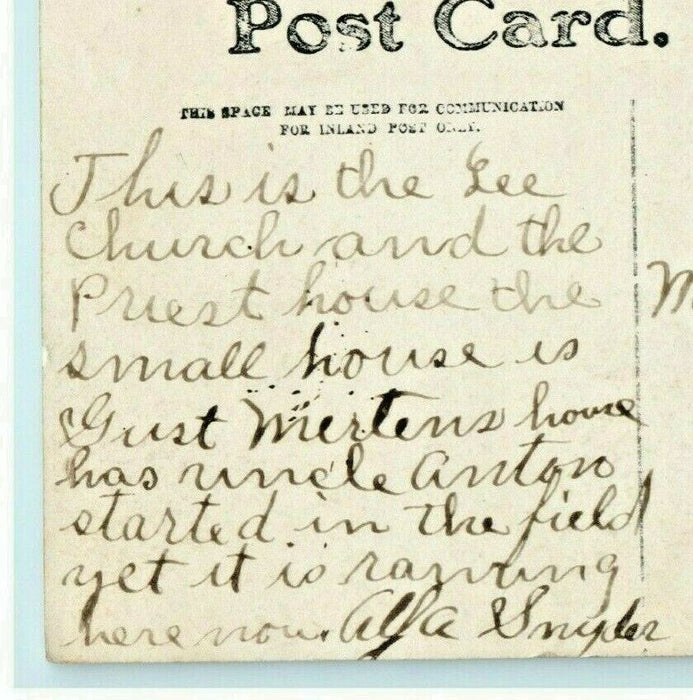 Post Card.
THIS SPACE MAY BE USED FOR COMMUNICATION
FOR INLAND POST ONLY.
This is the Lee
Church and the
Priest house the
small house is
Gust Mertens house
has uncle Anton
started in the field
yet it is raning
here now. Alfa Snyder
M